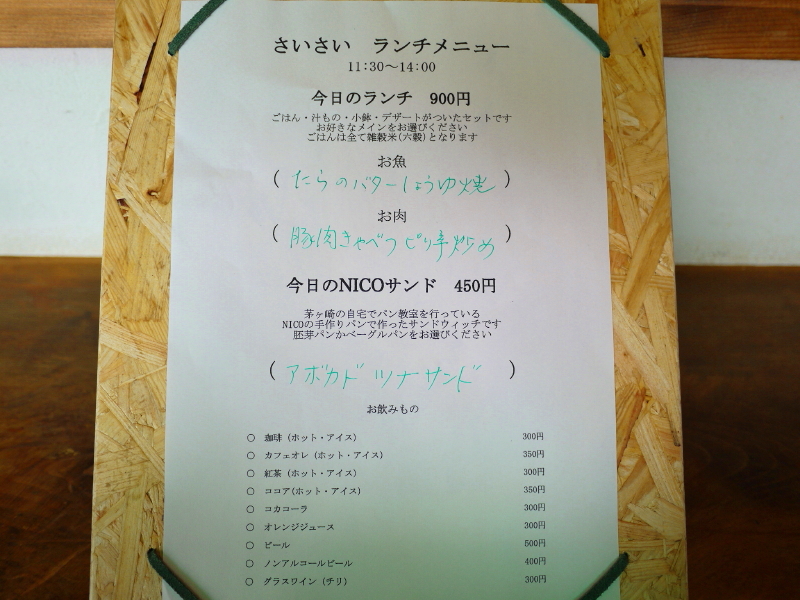 さいさい ランチメニュー
11:30～14:00
今日のランチ 900円
ごはん・汁もの・小鉢・デザートがついたセットです
お好きなメインをお選びください
ごはんは全て雑穀米(六穀)となります
お魚
(たらのバターしょうゆ焼)
お肉
(豚肉きゃべつピリ辛炒め)
今日のNICOサンド 450円
茅ヶ崎の自宅でパン教室を行っている
NICOの手作りパンで作ったサンドウィッチです
胚芽パンかベーグルパンをお選びください
(アボカドツナサンド)
お飲みもの
○ 珈琲(ホット・アイス) 300円
○ カフェオレ(ホット・アイス) 350円
○ 紅茶(ホット・アイス) 300円
○ ココア(ホット・アイス) 350円
○ コカコーラ 300円
○ オレンジジュース 300円
○ ビール 500円
○ ノンアルコールビール 400円
○ グラスワイン(チリ) 300円